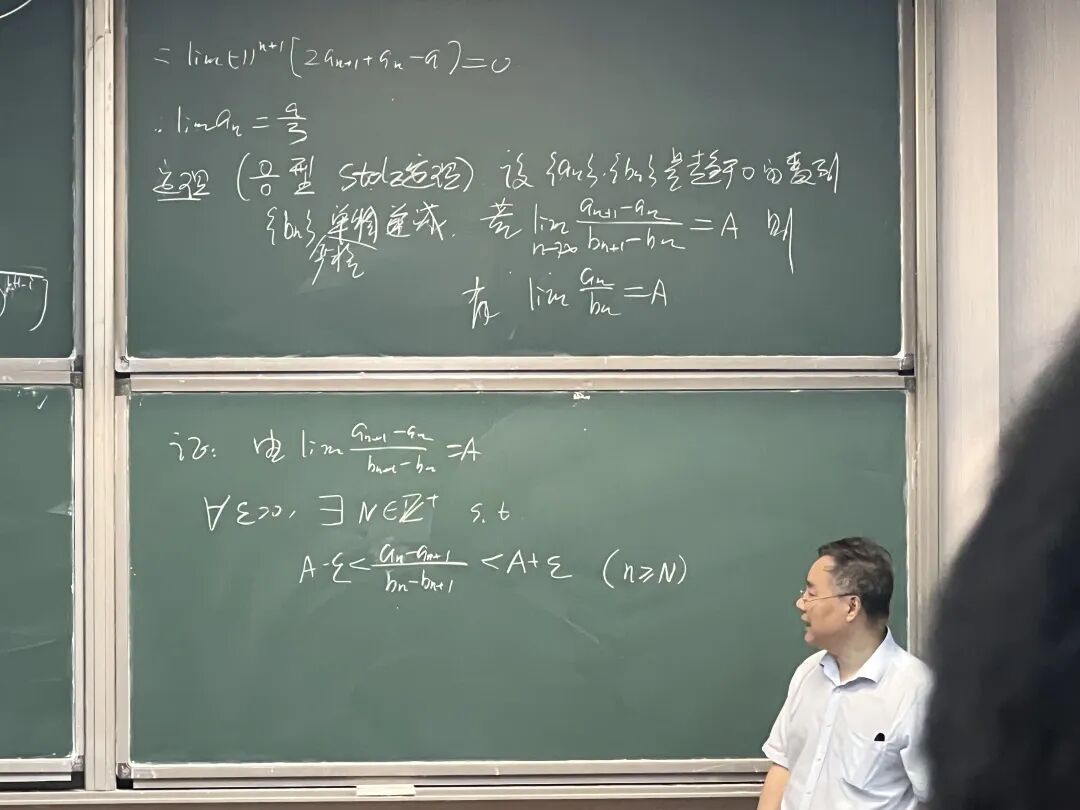 = lim(-1)^{n+1}(2a_{n+1}+a_n-a)=0
∴lim a_n = a/3
定理 (0/0型 Stolz定理) 设{a_n}.{b_n}是趋于0的数列
{b_n}单调递减. 若 lim_{n→∞} (a_{n+1}-a_n)/(b_{n+1}-b_n) = A 则
严格
有 lim a_n/b_n = A
证: 由 lim (a_{n+1}-a_n)/(b_{n+1}-b_n) = A
∀ε>0, ∃N∈Z⁺ s.t
A-ε< (a_n-a_{n+1})/(b_n-b_{n+1}) <A+ε (n≥N)